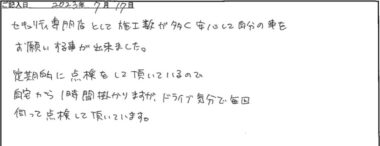 ご記入日 2023年 7月 17日
セキュリティ専門店として施工数が多く安心して自分の車を
お願いする事が出来ました。
定期的に点検をして頂いているので
自宅から1時間掛かりますが、ドライブ気分で毎回
伺って点検して頂いています。